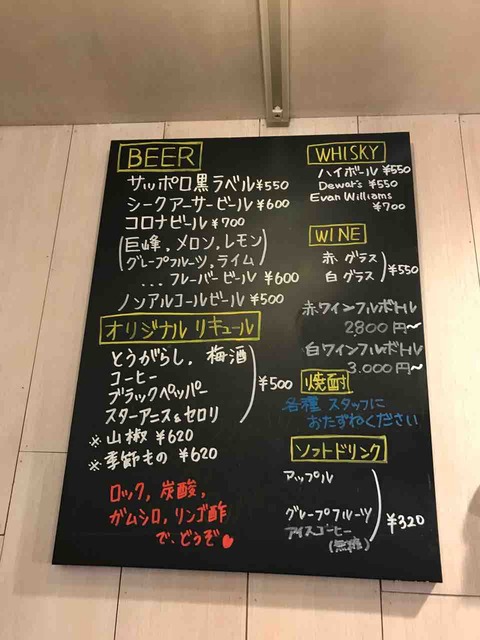 BEER
サッポロ黒ラベル ¥550
シークアーサービール ¥600
コロナビール ¥700
(巨峰, メロン, レモン
グレープフルーツ, ライム)
... フレーバービール ¥600
ノンアルコールビール ¥500
オリジナル リキュール
とうがらし, 梅酒
コーヒー
ブラックペッパー
スターアニス&セロリ
¥500
※山椒 ¥620
※季節もの ¥620
ロック, 炭酸,
ガムシロ, リンゴ酢
で、どうぞ♥
WHISKY
ハイボール ¥550
Dewar's ¥550
Evan Williams
¥700
WINE
赤 グラス
白 グラス
¥550
赤ワインフルボトル
2800円〜
白ワインフルボトル
3.000円〜
焼酎
各種 スタッフに
おたずねください
ソフトドリンク
アップル
グレープフルーツ
アイスコーヒー
(無糖)
¥320